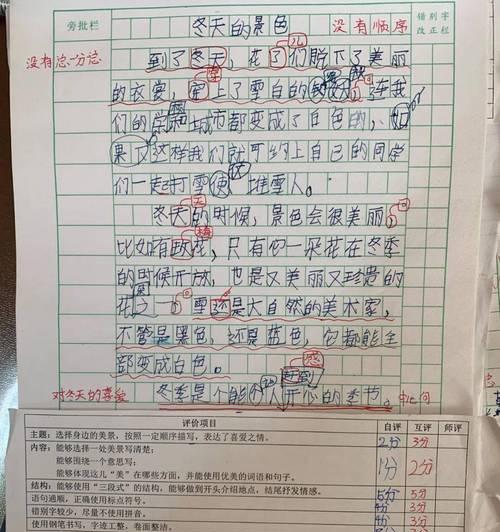 旁批栏
冬天的景色
没有顺序
错别字
改正栏
没有总-分总
到了冬天，花了们脱下了美丽
儿
的衣裳，穿上了雪白的 连我
们的 城市都变成了白色的，如
果 这样我们就可约上自己的同学
们一起打雪 堆雪人。
冬天的时候，景色会很美丽
比如有 花，只有它一朵花在冬季
梅
的时候开放，也是又美丽又珍贵的
花之一 雪还是大自然的美术家，
不管是黑色，还是蓝色，它都能全
部变成白色。
感
对冬天的喜爱
冬季是个能 人 开心的季节
评价项目
自评
互评
师评
主题：选择身边的美景，按照一定顺序描写，表达了喜爱之情。
2分
3分
内容：能够选择一处美景写清楚；
能够围绕一个意思写；
能够体现这儿“美”在哪些方面，并能使用优美的词语和句子。
1分
2分
结构：能够使用“三段式”的结构，能够做到开头介绍地点，结尾抒发情感。
5分
语句通顺，正确使用标点符号。
5分
错别字较少，尽量不使用拼音。
3分
使用钢笔书写，字迹工整，卷面整洁。
3分